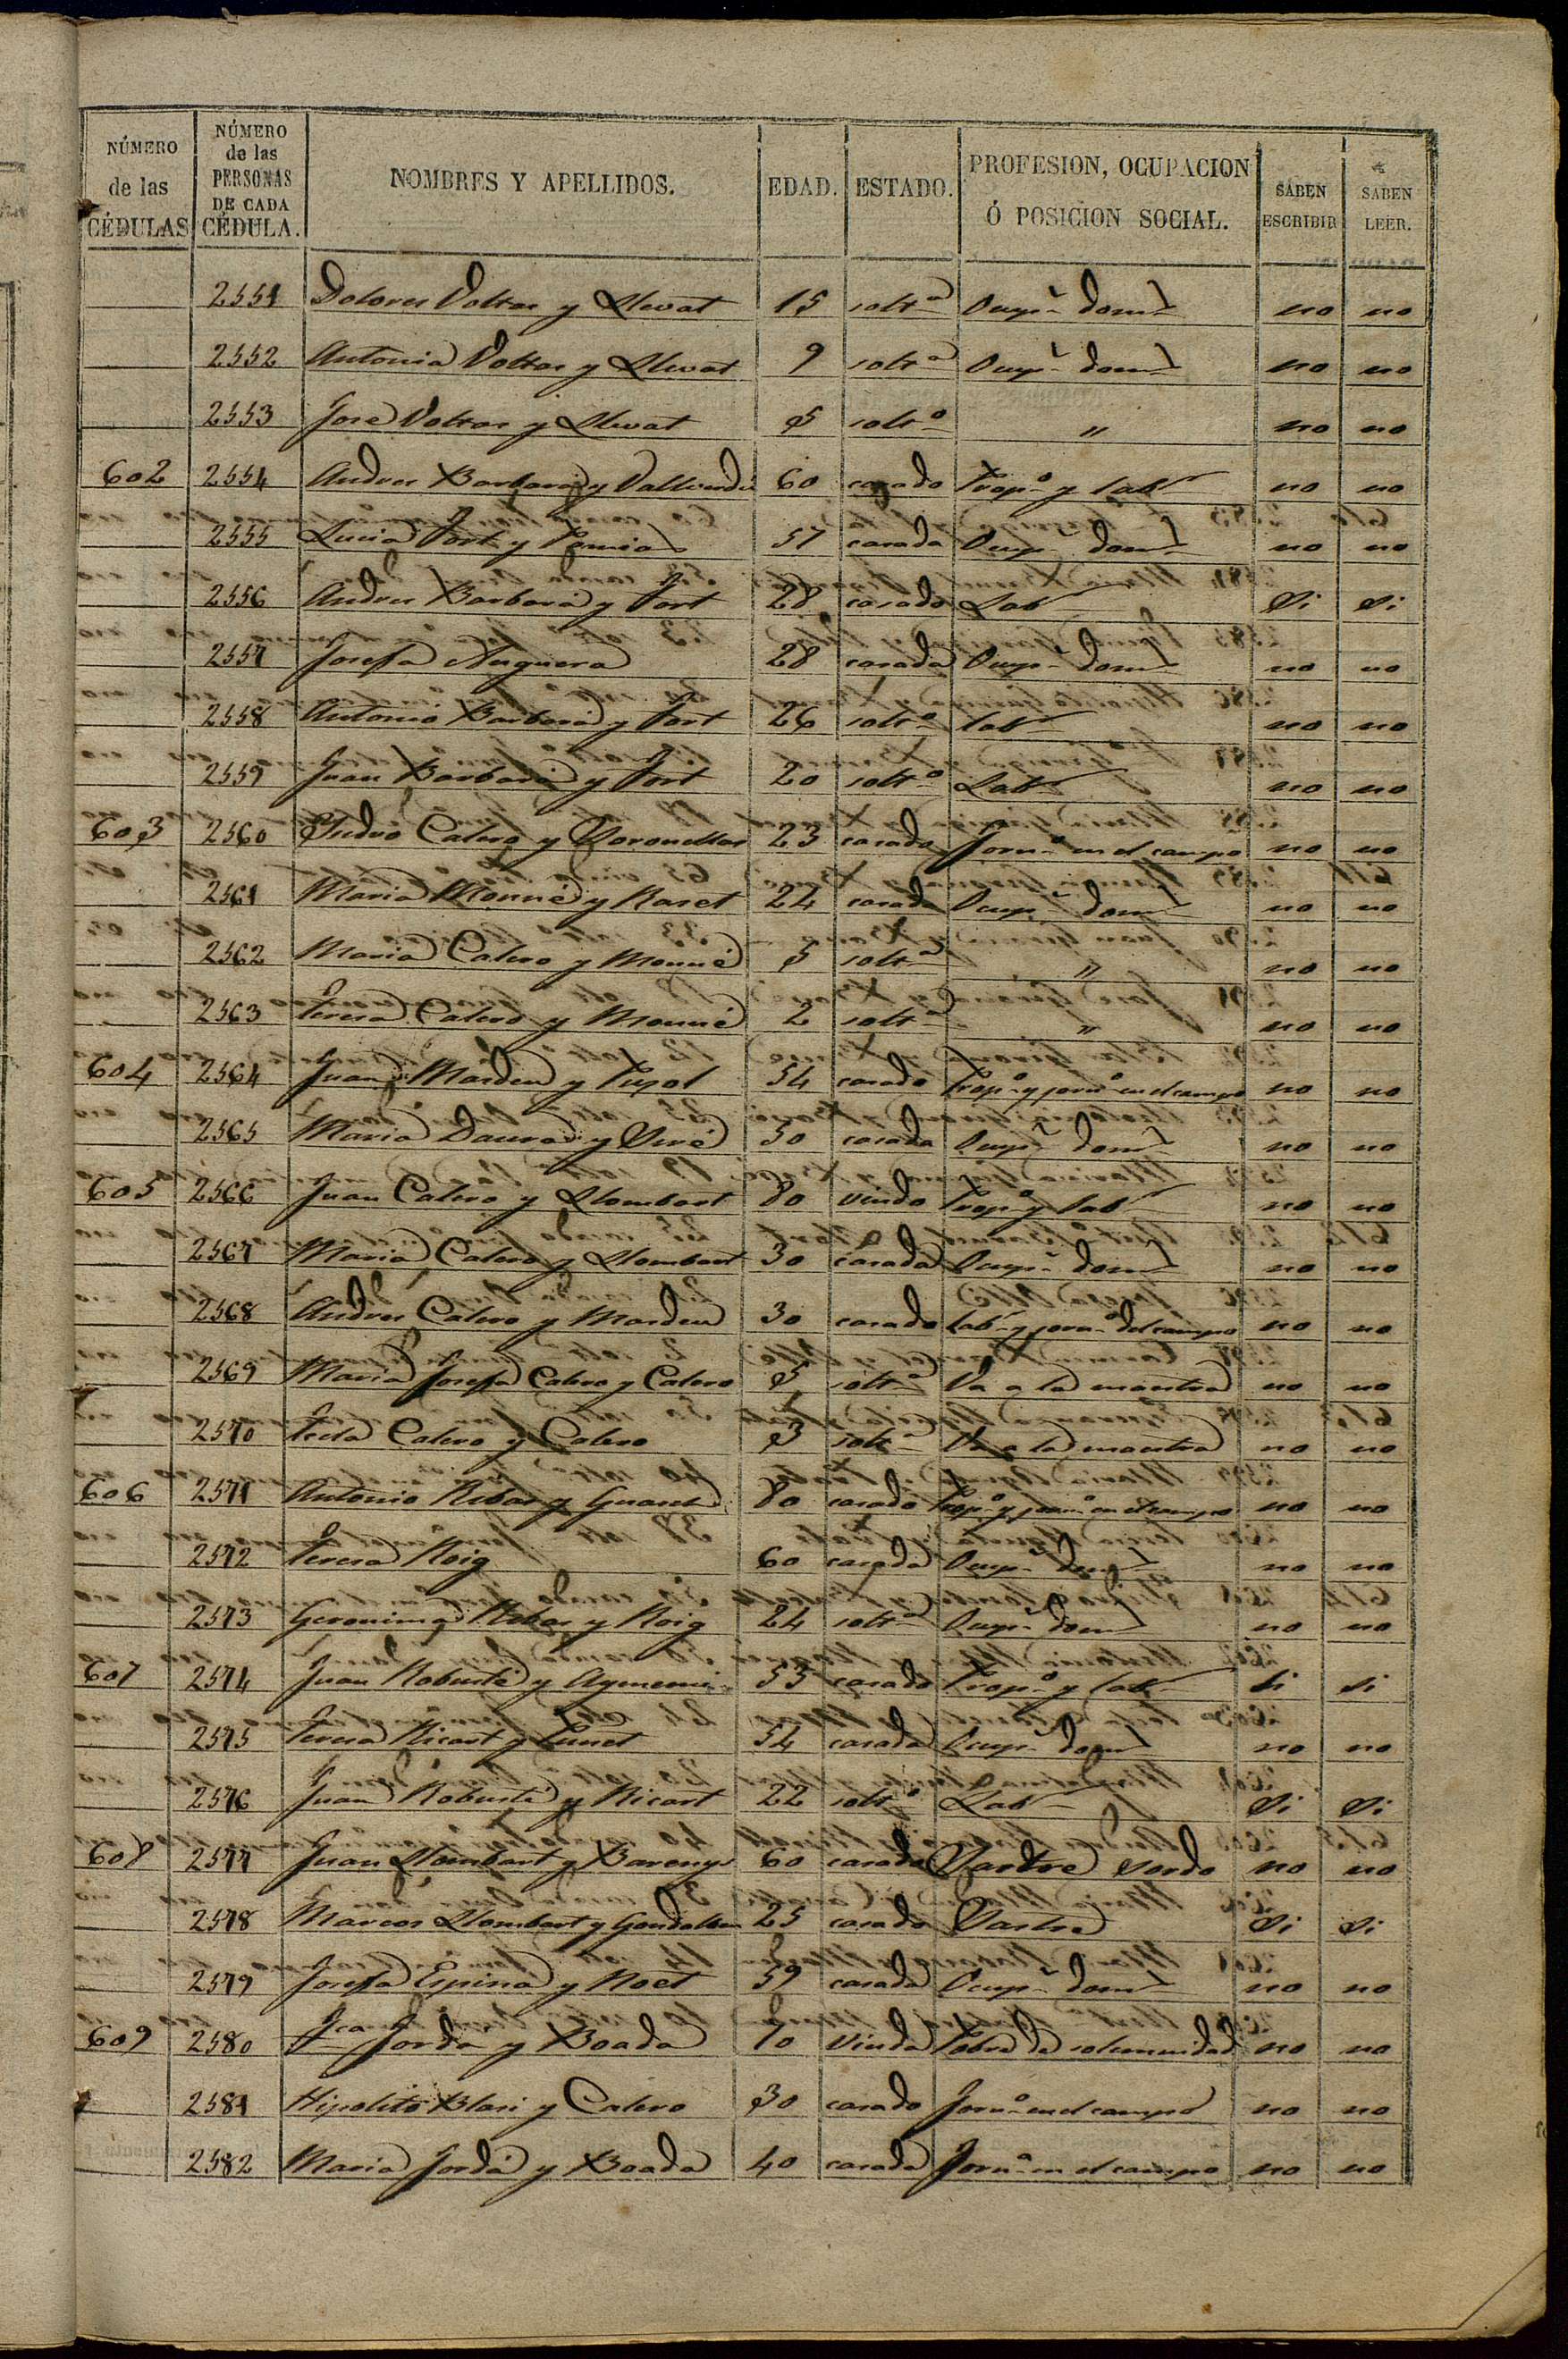 NÚMERO de las CÉDULAS NÚMERO de las PERSONAS DE CADA CÉDULA. NOMBRES Y APELLIDOS. EDAD. ESTADO. PROFESION, OCUPACION Ó POSICION SOCIAL. SABEN ESCRIBIR SABEN LEER.
2551 Dolores Voltas y Llevat 15 solt.ª Ocup.n dom.s no no
2552 Antonia Voltas y Llevat 9 solt.ª Ocup.n dom.s no no
2553 Jose Voltas y Llevat 5 solt.º " no no
602 2554 Andres Barbará y Vallverdú 60 casado Prop.º y lab.r no no
2555 Lucia Fort y 57 casada Ocup.n dom.s no no
2556 Andres Barbará y Fort 28 casado Lab.r Si Si
2557 Josefa Anguera 28 casada Ocup.n dom.s no no
2558 Antonio Barbará y Fort 26 solt.º Lab.r no no
2559 Juan Barbará y Fort 20 solt.º Lab.r no no
603 2560 Pedro Calero y 23 casado Jorn.º en el campo no no
2561 Maria Monné y Raset 24 casada Ocup.n dom.s no no
2562 Maria Calero y Monné 5 solt.ª " no no
2563 Teresa Calero y Monné 2 solt.ª " no no
604 2564 Juan Mardeu y Pujol 54 casado Prop.º y jorn.º en el campo no no
2565 Maria Daura y Viré 50 casada Ocup.n dom.s no no
605 2566 Juan Calero y Llombart 80 viudo Prop.º y lab.r no no
2567 Maria Calero y Llombart 30 casada Ocup.n dom.s no no
2568 Andres Calero y Mardeu 30 casado Lab.r y jorn.º del campo no no
2569 Maria Josefa Calero y Calero 5 solt.ª Va a la maestra no no
2570 Tecla Calero y Calero 3 solt.ª Va a la maestra no no
606 2571 Antonio Ribas y 80 casado Prop.º y jorn.º en el campo no no
2572 Teresa Roig 60 casada Ocup.n dom.s no no
2573 Geronima Ribas y Roig 24 solt.ª Ocup.n dom.s no no
607 2574 Juan Robusté y Aymemi 53 casado Prop.º y lab.r Si Si
2575 Teresa Ricart y 54 casada Ocup.n dom.s no no
2576 Juan Robusté y Ricart 22 solt.º Lab.r Si Si
608 2577 Juan Llombart y Barenys 60 casado Sastre sordo no no
2578 Marcos Llombart y 25 casado Sastre Si Si
2579 Josefa Espina y Noet 59 casada Ocup.n dom.s no no
609 2580 Fca Jordá y Boada 70 Viuda Pobre de solemnidad no no
2581 Hipolito Blasi y Calero 30 casado Jorn.º en el campo no no
2582 Maria Jordá y Boada 40 casada Jorn.ª en el campo no no